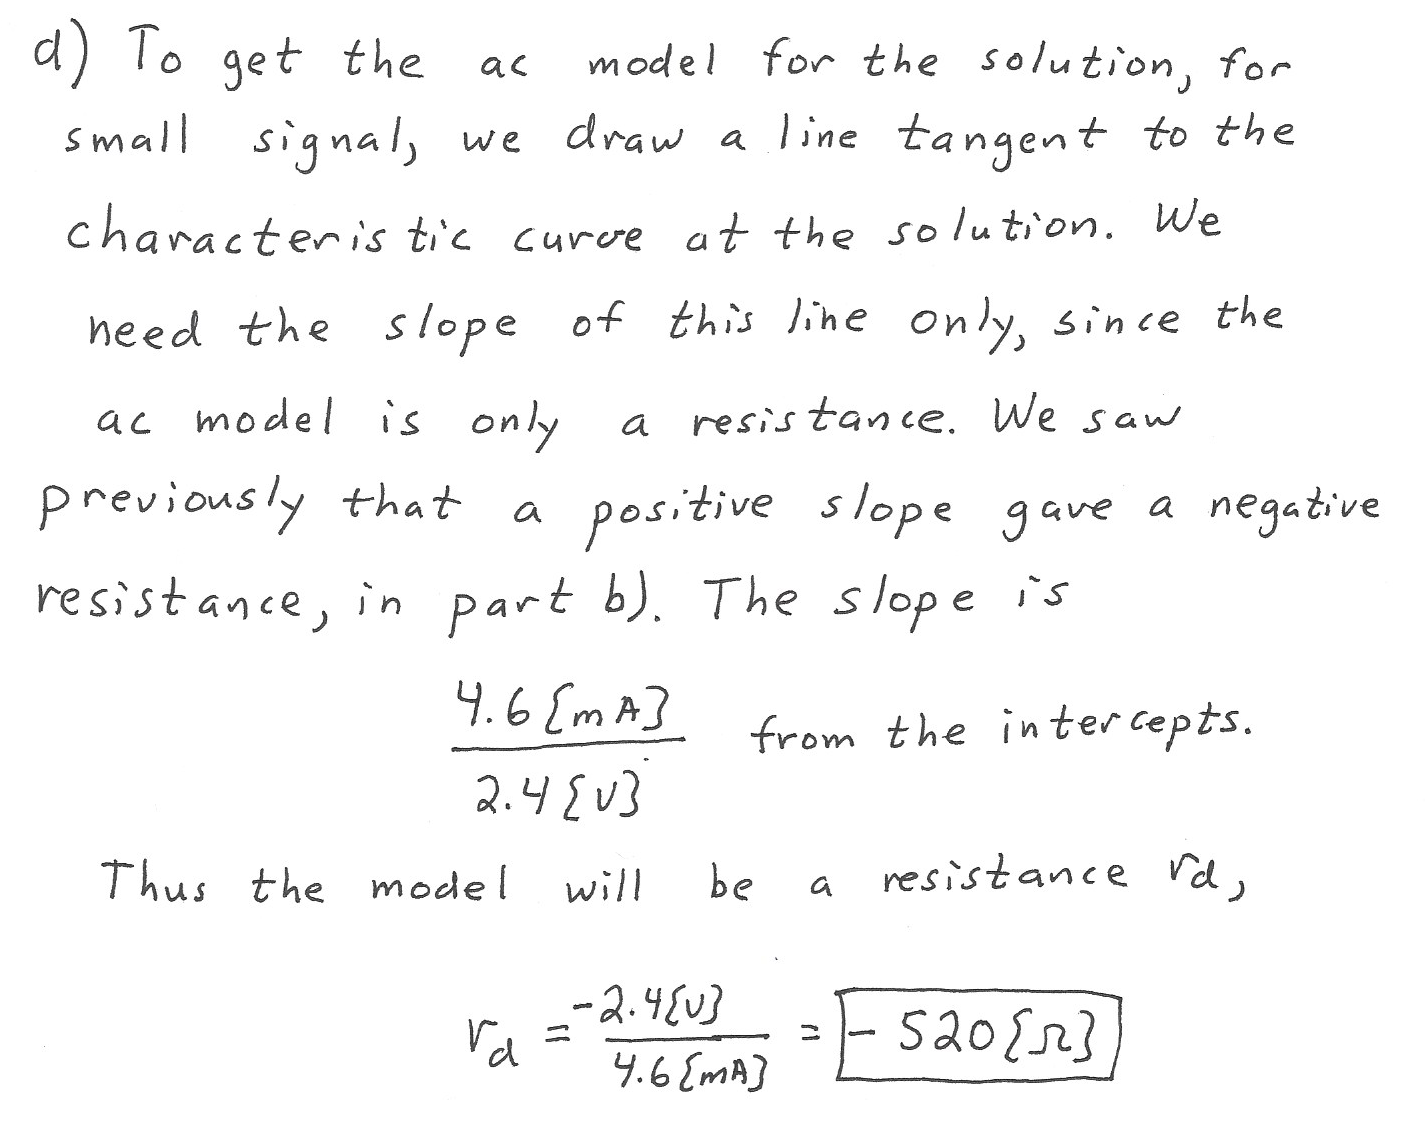 d) To get the ac model for the solution, for
small signal, we draw a line tangent to the
characteristic curve at the solution. We
need the slope of this line only, since the
ac model is only a resistance. We saw
previously that a positive slope gave a negative
resistance, in part b). The slope is
4.6 {mA} / 2.4 {V} from the intercepts.
Thus the model will be a resistance rd,
rd = -2.4{V} / 4.6 {mA} = - 520 {Ω}